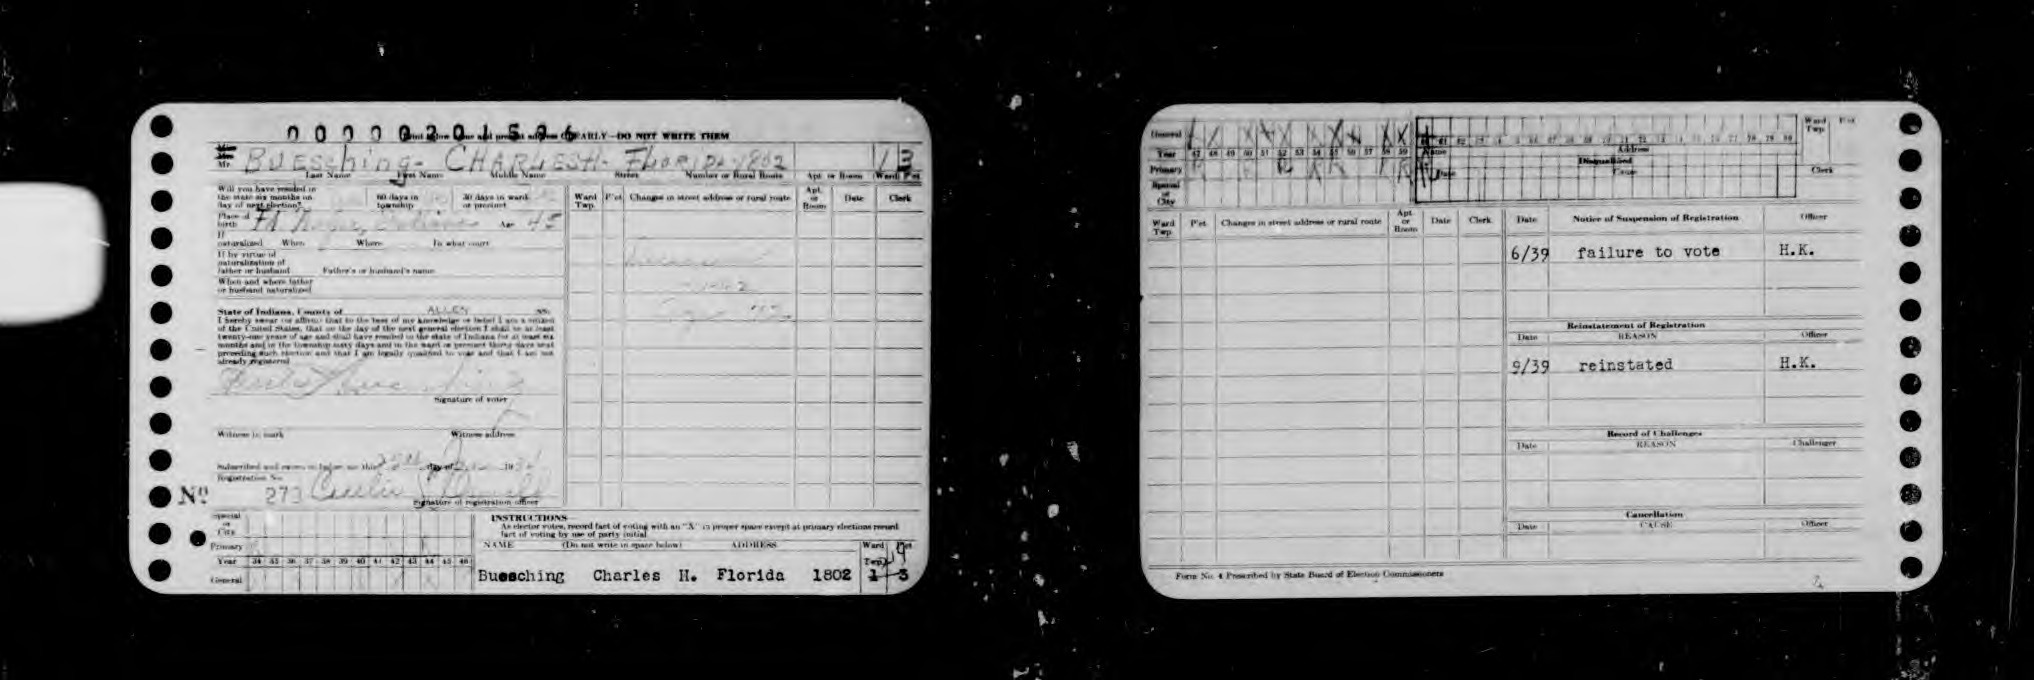 0000020159 6
EARLY—DO NOT WRITE THEM
Mr. BUESching- CHARLES H- FLORIDA-1802 1 3
Last Name First Name Middle Name Street Number or Rural Route Apt. or Room Ward Pct
Will you have resided in
the state six months on 60 days in 30 days in ward
day of next election? township or precinct
Place of
birth Ft Wayne, Indiana Age 45
If
naturalized When Where In what court
If by virtue of
naturalization of
father or husband Father's or husband's name
When and where father
or husband naturalized
State of Indiana, County of ALLEN SS:
I hereby swear (or affirm) that to the best of my knowledge or belief I am a citizen
of the United States, that on the day of the next general election I shall be at least
twenty-one years of age and shall have resided in the state of Indiana for at least six
months and in the township sixty days and in the ward or precinct thirty days next
preceding such election and that I am legally qualified to vote and that I am not
already registered
Signature of voter
Witness to mark Witness address
Subscribed and sworn to before me this day of 19
Registration No.
No 273
Signature of registration officer
Ward Twp. P'ct Changes in street address or rural route Apt. or Room Date Clerk
Special
or
City
Primary
Year 34 35 36 37 38 39 40 41 42 43 44 45 46
General
INSTRUCTIONS
As elector votes, record fact of voting with an "X" in proper space except at primary elections record
fact of voting by use of party initial.
NAME (Do not write in space below) ADDRESS Ward Twp. Pct
Buesching Charles H. Florida 1802 1 3
General X X X X X X X X X X
Year 47 48 49 50 51 52 53 54 55 56 57 58 59
Primary R R R R R R R
Special
or
City
Name Address
Disqualified
Date Cause Clerk
Ward Twp. P'ct
Ward Twp P'ct Changes in street address or rural route Apt or Room Date Clerk
Date Notice of Suspension of Registration Officer
6/39 failure to vote H.K.
Reinstatement of Registration
Date REASON Officer
9/39 reinstated H.K.
Record of Challenges
Date REASON Challenger
Cancellation
Date CAUSE Officer
Form No. 4 Prescribed by State Board of Election Commissioners